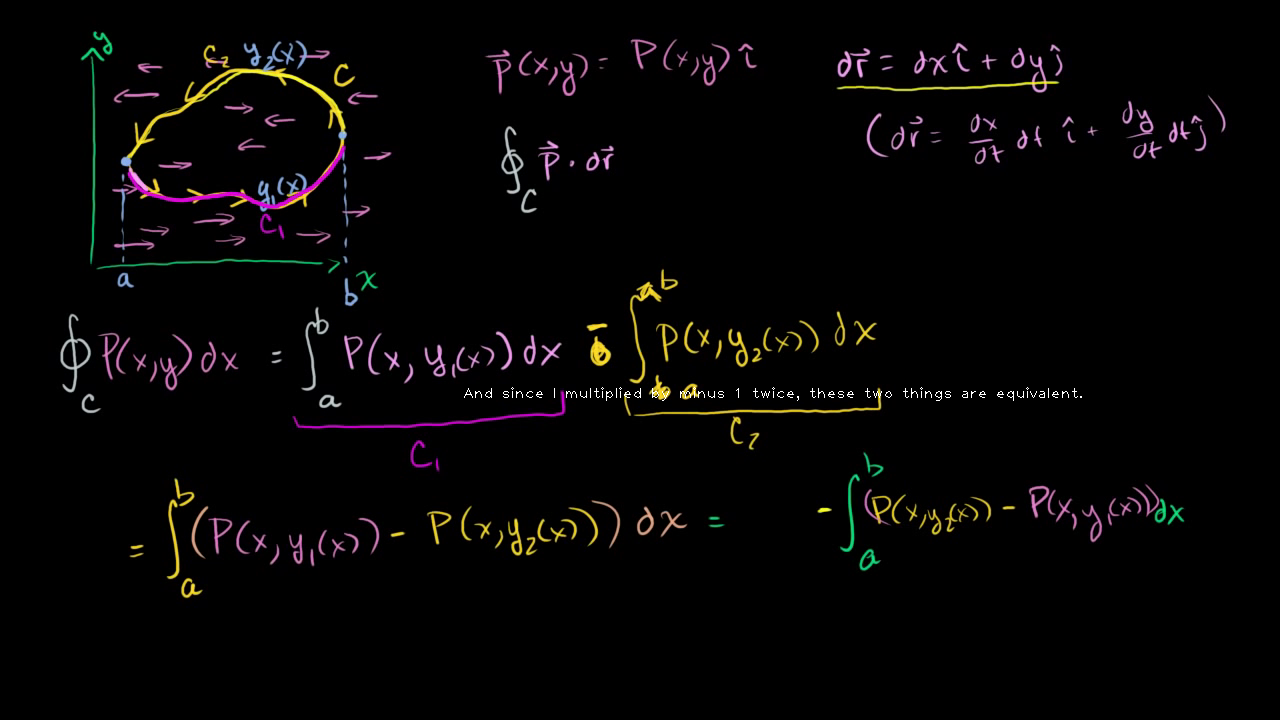 y
C₂ y₂(x)
C
y₁(x)
C₁
a
b
x
p⃗(x,y) = P(x,y) î
dr⃗ = dx î + dy ĵ
(dr⃗ = dx/dt dt î + dy/dt dt ĵ)
∮_C p⃗ · dr⃗
∮_C P(x,y) dx = ∫_a^b P(x, y₁(x)) dx - ∫_a^b P(x, y₂(x)) dx
And since I multiplied by minus 1 twice, these two things are equivalent.
C₁
C₂
= ∫_a^b (P(x, y₁(x)) - P(x, y₂(x))) dx = - ∫_a^b (P(x, y₂(x)) - P(x, y₁(x))) dx